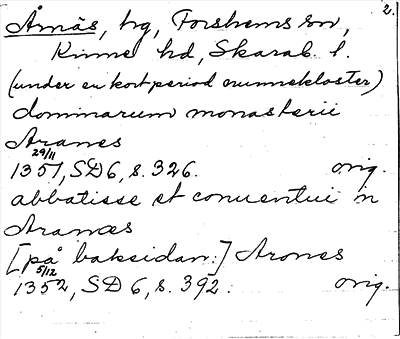 2.
Årnäs, hg, Forshems sn,
Kinne hd, Skarab. l.
(under en kort period nunnekloster)
dominarum monasterii
Aranes
29/11
1351, SD 6, s. 326. orig.
abbatisse et conuentui in
Aranæs
[på baksidan:] Arones
5/12
1352, SD 6, s. 392. orig.